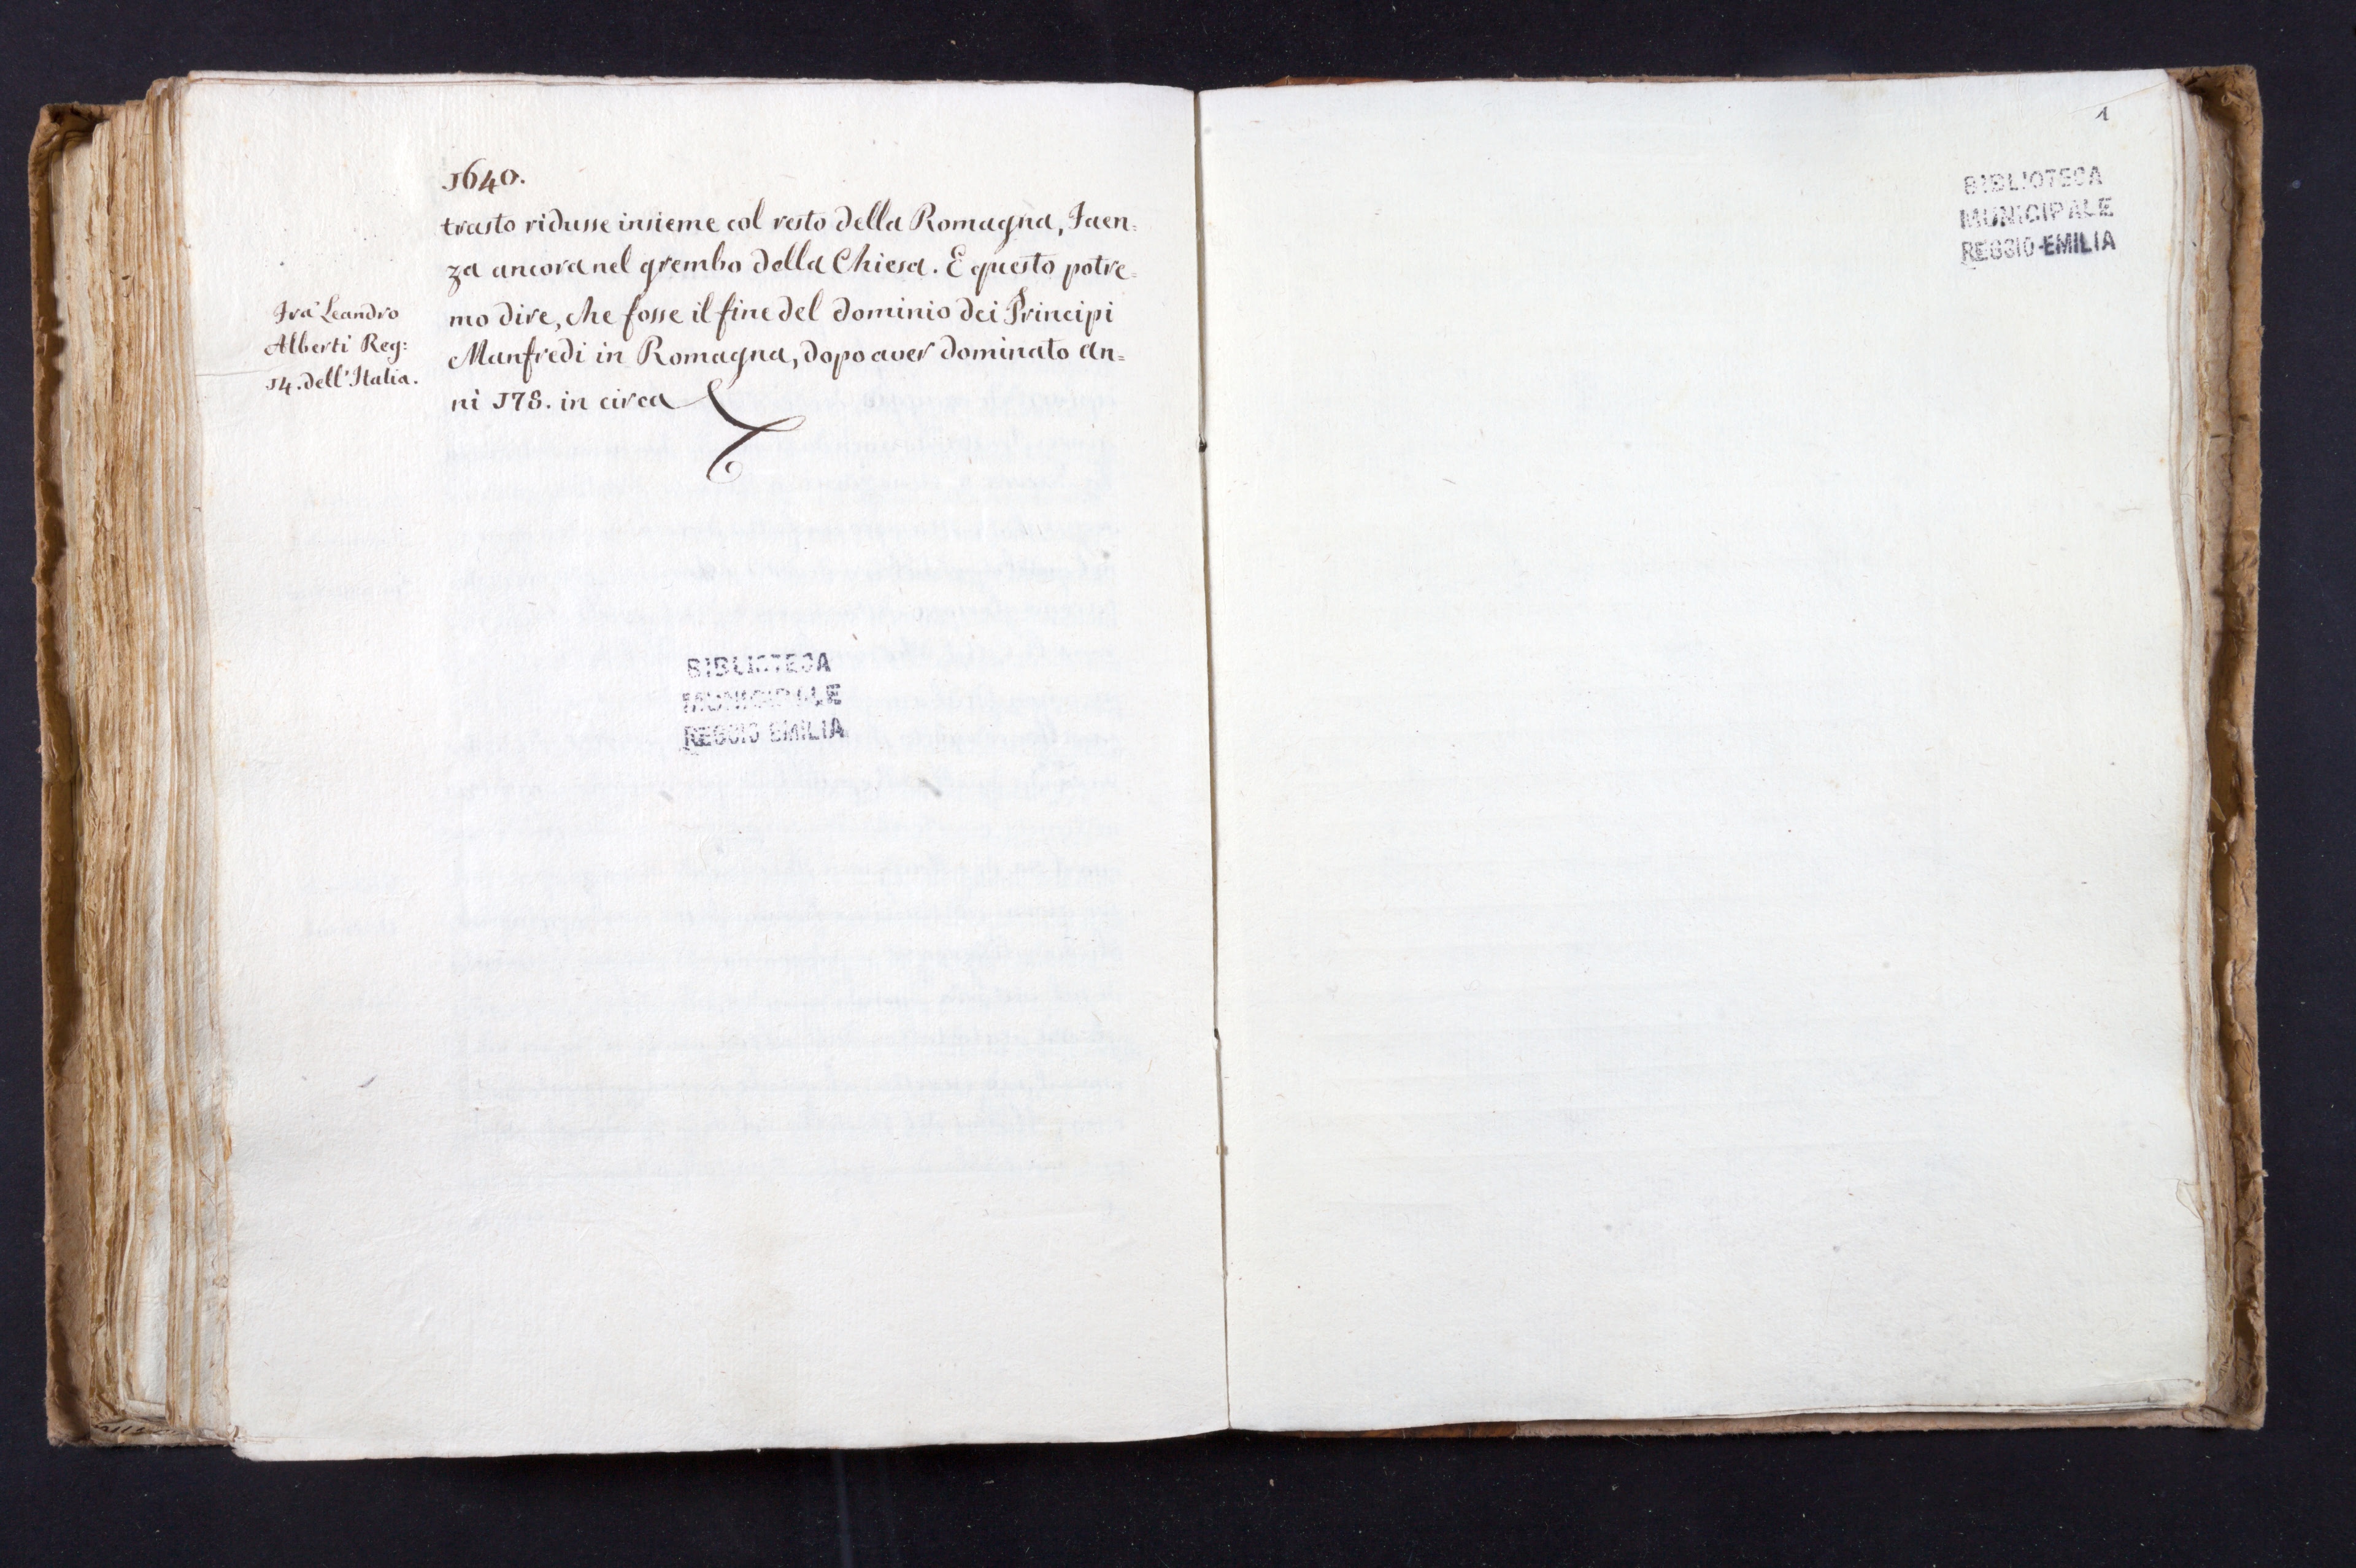 1640.
trasto ridusse insieme col resto della Romagna, Faen=
za ancora nel grembo della Chiesa. E questo potre=
mo dire, che fosse il fine del dominio dei Principi
Manfredi in Romagna, dopo aver dominato an=
ni 178. in circa
Fra Leandro
Alberti Reg:
14. dell'Italia.
BIBLIOTECA
MUNICIPALE
REGGIO EMILIA
1
BIBLIOTECA
MUNICIPALE
REGGIO-EMILIA